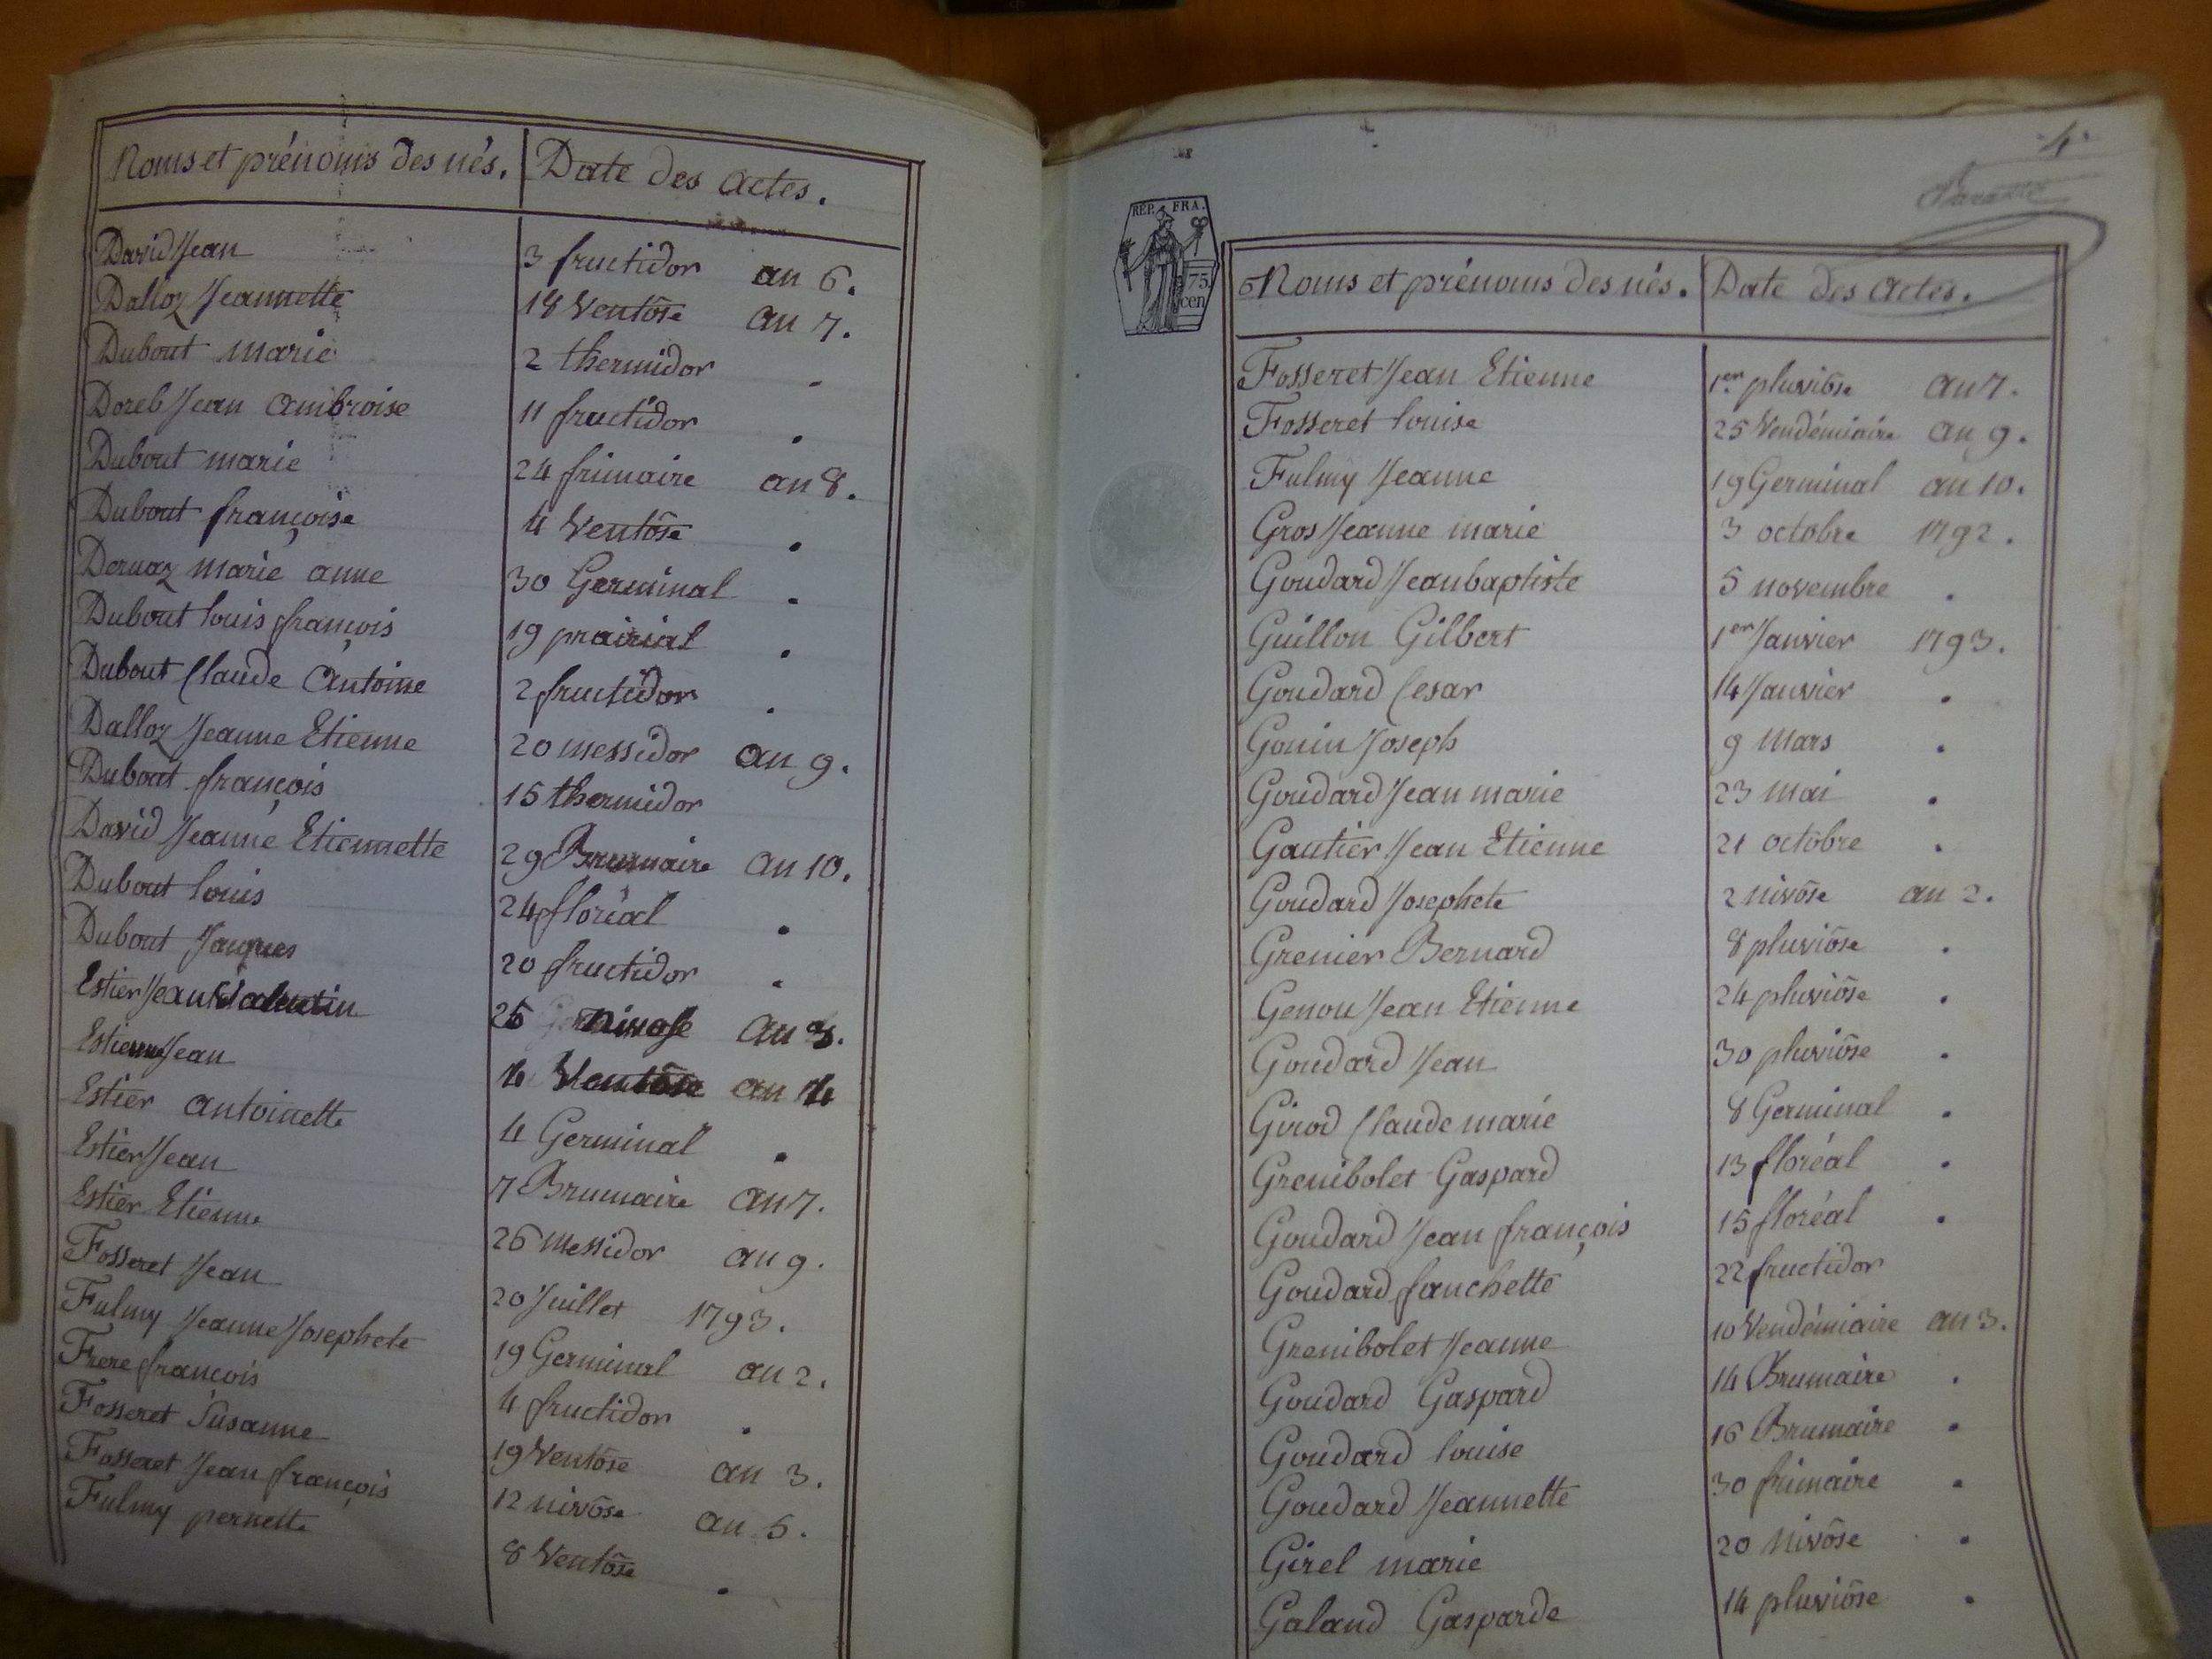 Noms et prénoms des nés. Date des actes.
David Jean 3 fructidor an 6.
Dalloz Jeannette 18 Ventôse an 7.
Dubout marie 2 thermidor .
Doreb Jean ambroise 11 fructidor .
Dubout marie 24 frimaire an 8.
Dubout françoise 4 Ventôse .
Dernaz marie anne 30 Germinal .
Dubout louis françois 19 prairial .
Dubout Claude Antoine 2 fructidor .
Dalloz Jeanne Etienne 20 messidor an 9.
Dubout françois 15 thermidor
David Jeanne Etiennette 29 Brumaire an 10.
Dubout louis 24 floréal .
Dubout Jaques 20 fructidor .
Estier Jean Valentin 25 nivose an 3.
Estier Jean 4 Ventôse an 4
Estier antoinette 4 Germinal .
Estier Jean 7 Brumaire an 7.
Estier Etienne 26 messidor an 9.
Fosseret Jean 20 Juillet 1793.
Fulmy Jeanne Josephete 19 Germinal an 2.
Frere françois 4 fructidor .
Fosseret Susanne 19 Ventôse an 3.
Fosseret Jean françois 12 nivôse an 5.
Fulmy pernette 8 Ventôse .
4
REP. FRA.
75
cen
Noms et prénoms des nés. Date des actes.
Fosseret Jean Etienne 1er pluviôse an 7.
Fosseret louise 25 Vendémiaire an 9.
Fulmy Jeanne 19 Germinal an 10.
Gros Jeanne marie 3 octobre 1792.
Goudard Jean baptiste 5 novembre .
Guillon Gilbert 1er Janvier 1793.
Goudard Cesar 14 Janvier .
Gouin Joseph 9 Mars .
Goudard Jean marie 23 mai .
Gautier Jean Etienne 21 octobre .
Goudard Josephete 2 nivôse an 2.
Grenier Bernard 8 pluviôse .
Genou Jean Etienne 24 pluviôse .
Goudard Jean 30 pluviôse .
Girod Claude marie 8 Germinal .
Grenibolet Gaspard 13 floréal .
Goudard Jean françois 15 floréal .
Goudard fanchette 22 fructidor
Grenibolet Jeanne 10 Vendémiaire an 3.
Goudard Gaspard 14 Brumaire .
Goudard louise 16 Brumaire .
Goudard Jeannette 30 frimaire .
Girel marie 20 Nivôse .
Galand Gasparde 14 pluviôse .